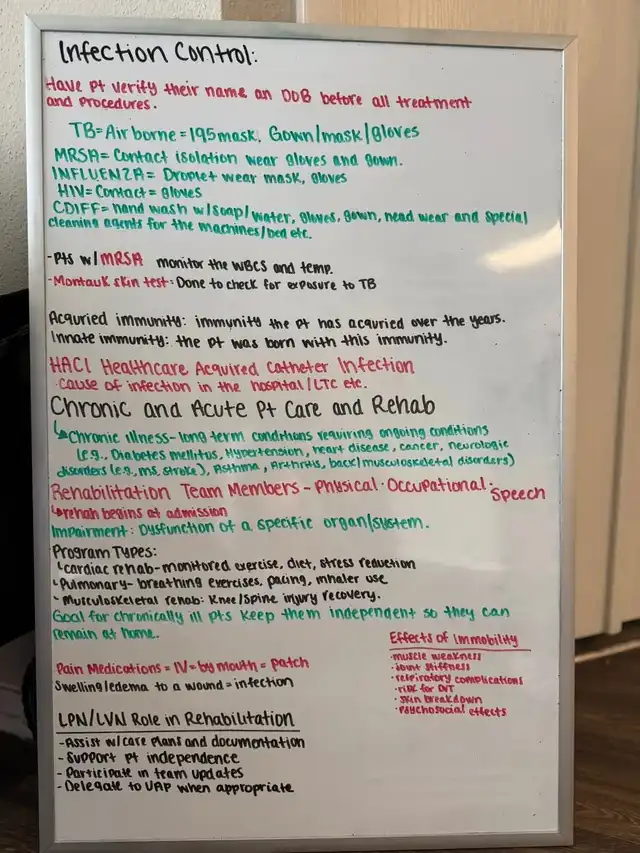 Infection Control:
Have Pt verify their name an DOB before all treatment
and Procedures.
TB=Air borne = 195 mask, Gown/mask/gloves
MRSA= Contact isolation wear gloves and gown.
INFLUENZA= Droplet wear mask, gloves
HIV= Contact = gloves
CDIFF= hand wash w/soap/water, gloves, gown, head wear and special
cleaning agents for the machines/bed etc.
-Pts w/MRSA monitor the WBCS and temp.
-Montauk skin test: Done to check for exposure to TB
Acquried immunity: immynity the pt has acquried over the years.
Innate immunity: the pt was born with this immunity.
HACI Healthcare Acquired Catheter Infection
·Cause of infection in the hospital/LTC etc.
Chronic and Acute Pt Care and Rehab
Chronic illness- long term conditions requiring ongoing conditions
(e.g., Diabetes mellitus, Hypertension, heart disease, cancer, neurologic
disorders (e.g., ms, stroke), Asthma, Arthritis, back/musculoskeletal disorders)
Rehabilitation Team Members - Physical · Occupational · Speech
rehab begins at admission
Impairment: Dysfunction of a specific organ/system.
Program Types:
cardiac rehab-monitored exercise, diet, stress reduction
Pulmonary- breathing exercises, pacing, inhaler use
Musculoskeletal rehab: Knee/Spine injury recovery.
Goal for chronically ill pts keep them independent so they can
remain at home.
Pain Medications = IV = by mouth = patch
Swelling/edema to a wound = infection
Effects of Immobility
·muscle weakness
·Joint stiffness
·respiratory complications
·risk for DVT
·skin breakdown
·Psychosocial effects
LPN/LVN Role in Rehabilitation
-Assist w/care plans and documentation
-Support pt independence
-Participate in team updates
-Delegate to UAP when appropriate